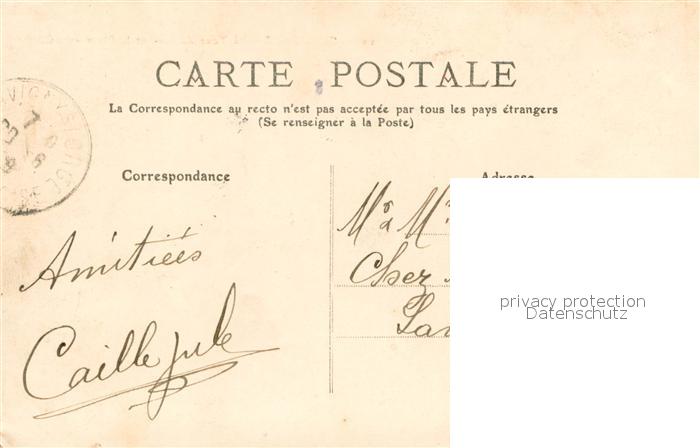 CARTE POSTALE
La Correspondance au recto n'est pas acceptée par tous les pays étrangers
(Se renseigner à la Poste)
Correspondance
Adresse
Amitiées
Caille Jule
Mr & M
Chez
privacy protection
Datenschutz